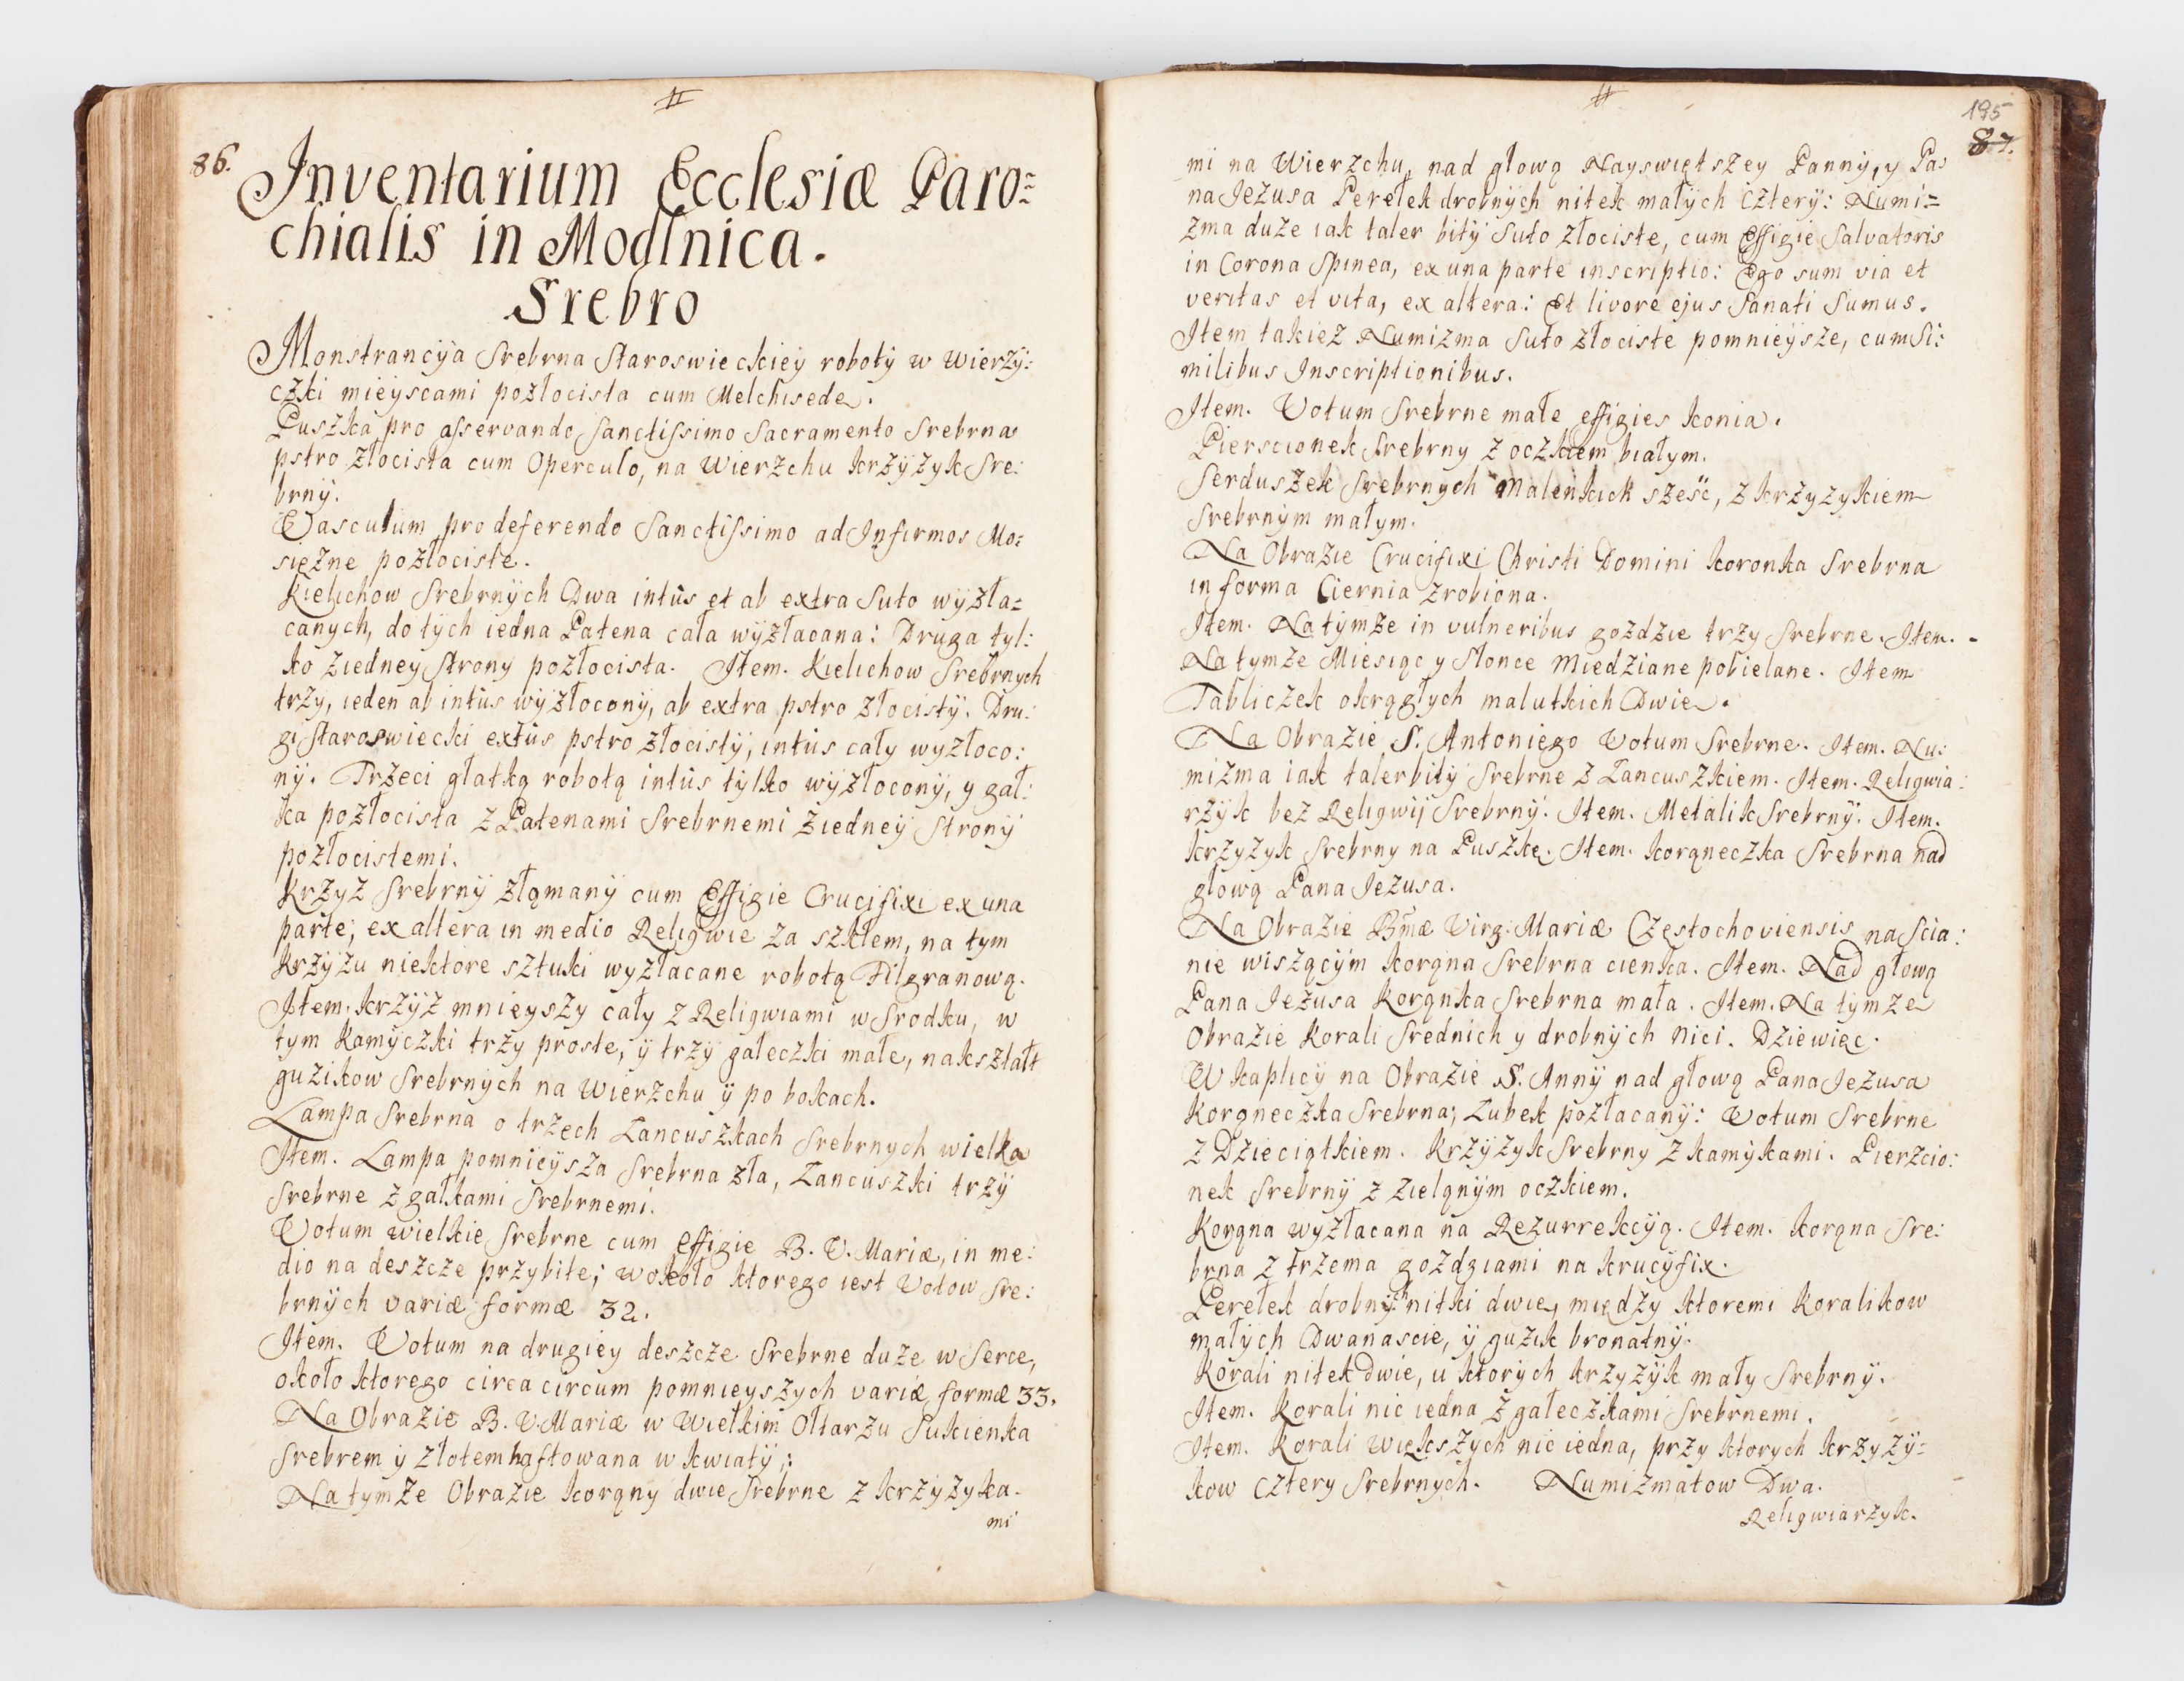 86.
Inventarium Ecclesiæ Paro=
chialis in Modlnica.
Srebro
Monstrancÿa Srebrna Staroswieckieÿ robotÿ w wierzÿ:
czki mieÿscami pozłocista cum Melchisede.
Puszka pro asservando Sanctissimo Sacramento Srebrna
pstro złocista cum Operculo, na Wierzchu krzÿzyk Sre:
brnÿ.
Vasculum pro deferendo Sanctissimo ad Infirmos Mo:
siężne pozłociste.
Kielichow Srebrnÿch Dwa intùs et ab extra Suto wÿzła=
canych, do tÿch iedna Patena cała wÿzłacana: Druga tyl:
ko ziedney Strony pozłocista. Item. Kielichow Srebrnych
trzy, ieden ab intùs wÿzłoconÿ, ab extra pstro złocistÿ. Dru:
gi Staroswiecki extùs pstro złocistÿ, intùs całÿ wyzłoco:
nÿ. Trzeci głatką robotą intùs tÿlko wÿzłoconÿ, y gał:
ka pozłocista z Patenami Srebrnemi ziedneÿ Stronÿ
pozłocistemi.
Krzyz Srebrnÿ złąmanÿ cum Effigie Crucifixi ex una
parte, ex altera in medio Religwie za szkłem, na tym
krzÿzu niektore sztuki wyzłacane robotą Filgranową.
Item. krzÿz mnieyszy całÿ z Religwiami w Srodku, w
tym kamÿczki trzÿ proste, ÿ trzÿ gałeczki małe, nakształt
guzikow Srebrnÿch na Wierzchu ÿ po bokach.
Lampa Srebrna o trzech Łancuszkach Srebrnych wielka
Item. Lampa pomnieÿsza Srebrna zła, Łancuszki trzÿ
Srebrne z gałkami Srebrnemi.
Votum wielkie Srebrne cum effigie B. V. Mariæ, in me:
dio na deszcze przybite; wokoło ktorego iest Votow Sre:
brnÿch variæ formæ 32.
Item. Votum na drugieÿ deszcze Srebrne duze w Serce,
około ktorego circa circum pomnieyszych variæ formæ 33.
Na Obrazie B. V. Mariæ w Wielkim Ołtarzu Sukienka
Srebrem ÿ złotem haftowana w kwiatÿ;
Na tymze Obrazie korąny dwie Srebrne z krzÿzyka-
mi
195
87.
mi na Wierzchu, nad głową Nayswiętszey Pannÿ, y Pa:
na Jezusa Perełek drobnÿch nitek małÿch czterÿ: Numi=
zma duze iak taler bitÿ Suto złociste, cum Effigie Salvatoris
in Corona Spinea, ex una parte inscriptio: Ego sum via et
veritas et vita, ex altera: Et livore ejus Sanati Sumus.
Item takiez Numizma Suto złociste pomnieÿsze, cum Si:
milibus Inscriptionibus.
Item. Votum Srebrne małe effigies konia.
Pierscionek Srebrny z oczkiem białym.
Serduszek Srebrnych Malenkich szesć, z krzyzykiem
Srebrnÿm małym.
Na Obrazie Crucifixi Christi Domini koronka Srebrna
in forma Ciernia zrobiona.
Item. Na tÿmze in vulneribus gozdzie trzy Srebrne. Item.
Na tymze Miesiąc y Słonce Miedziane pobielane. Item
Tabliczek okrągłych malutkich Dwie.
Na Obrazie S. Antoniego Votum Srebrne. Item. Nu:
mizma iak taler bitÿ Srebrne z Łancuszkiem. Item. Religwia:
rzÿk bez Religwij Srebrnÿ. Item. Metalik Srebrnÿ. Item.
krzyzyk Srebrny na Puszkę. Item. korąneczka Srebrna nad
głową Pana Jezusa.
Na Obrazie Bmæ Virg: Mariæ Częstochoviensis na Scia:
nie wiszącÿm korąna Srebrna cienka. Item. Nad głową
Pana Jezusa Korąnka Srebrna mała. Item. Na tÿmze
Obrazie Korali Srednich y drobnÿch nici. Dziewięc.
W kaplicÿ na Obrazie S. Annÿ nad głową Pana Jezusa
Korąneczka Srebrna; Lubek pozłacanÿ: Votum Srebrne
z Dzieciątkiem. Krzÿzyk Srebrny z kamÿkami. Pierzcio:
nek Srebrnÿ z zieląnÿm oczkiem.
Korąna wyzłacana na Rezurrekcÿą. Item. korąna Sre:
brna z trzema gozdziami na krucÿfix.
Perełek drobnÿ:ch nitki dwie, między ktoremi Koralikow
małÿch Dwanascie, ÿ guzik bronatnÿ.
Korali nitek Dwie, u ktorych krzyzÿk małÿ Srebrnÿ.
Item. Korali nic iedna z gałeczkami Srebrnemi.
Item. Korali Większÿch nic iedna, przy ktorych krzyzÿ=
kow cztery Srebrnych. Numizmatow Dwa.
Religwiarzyk.